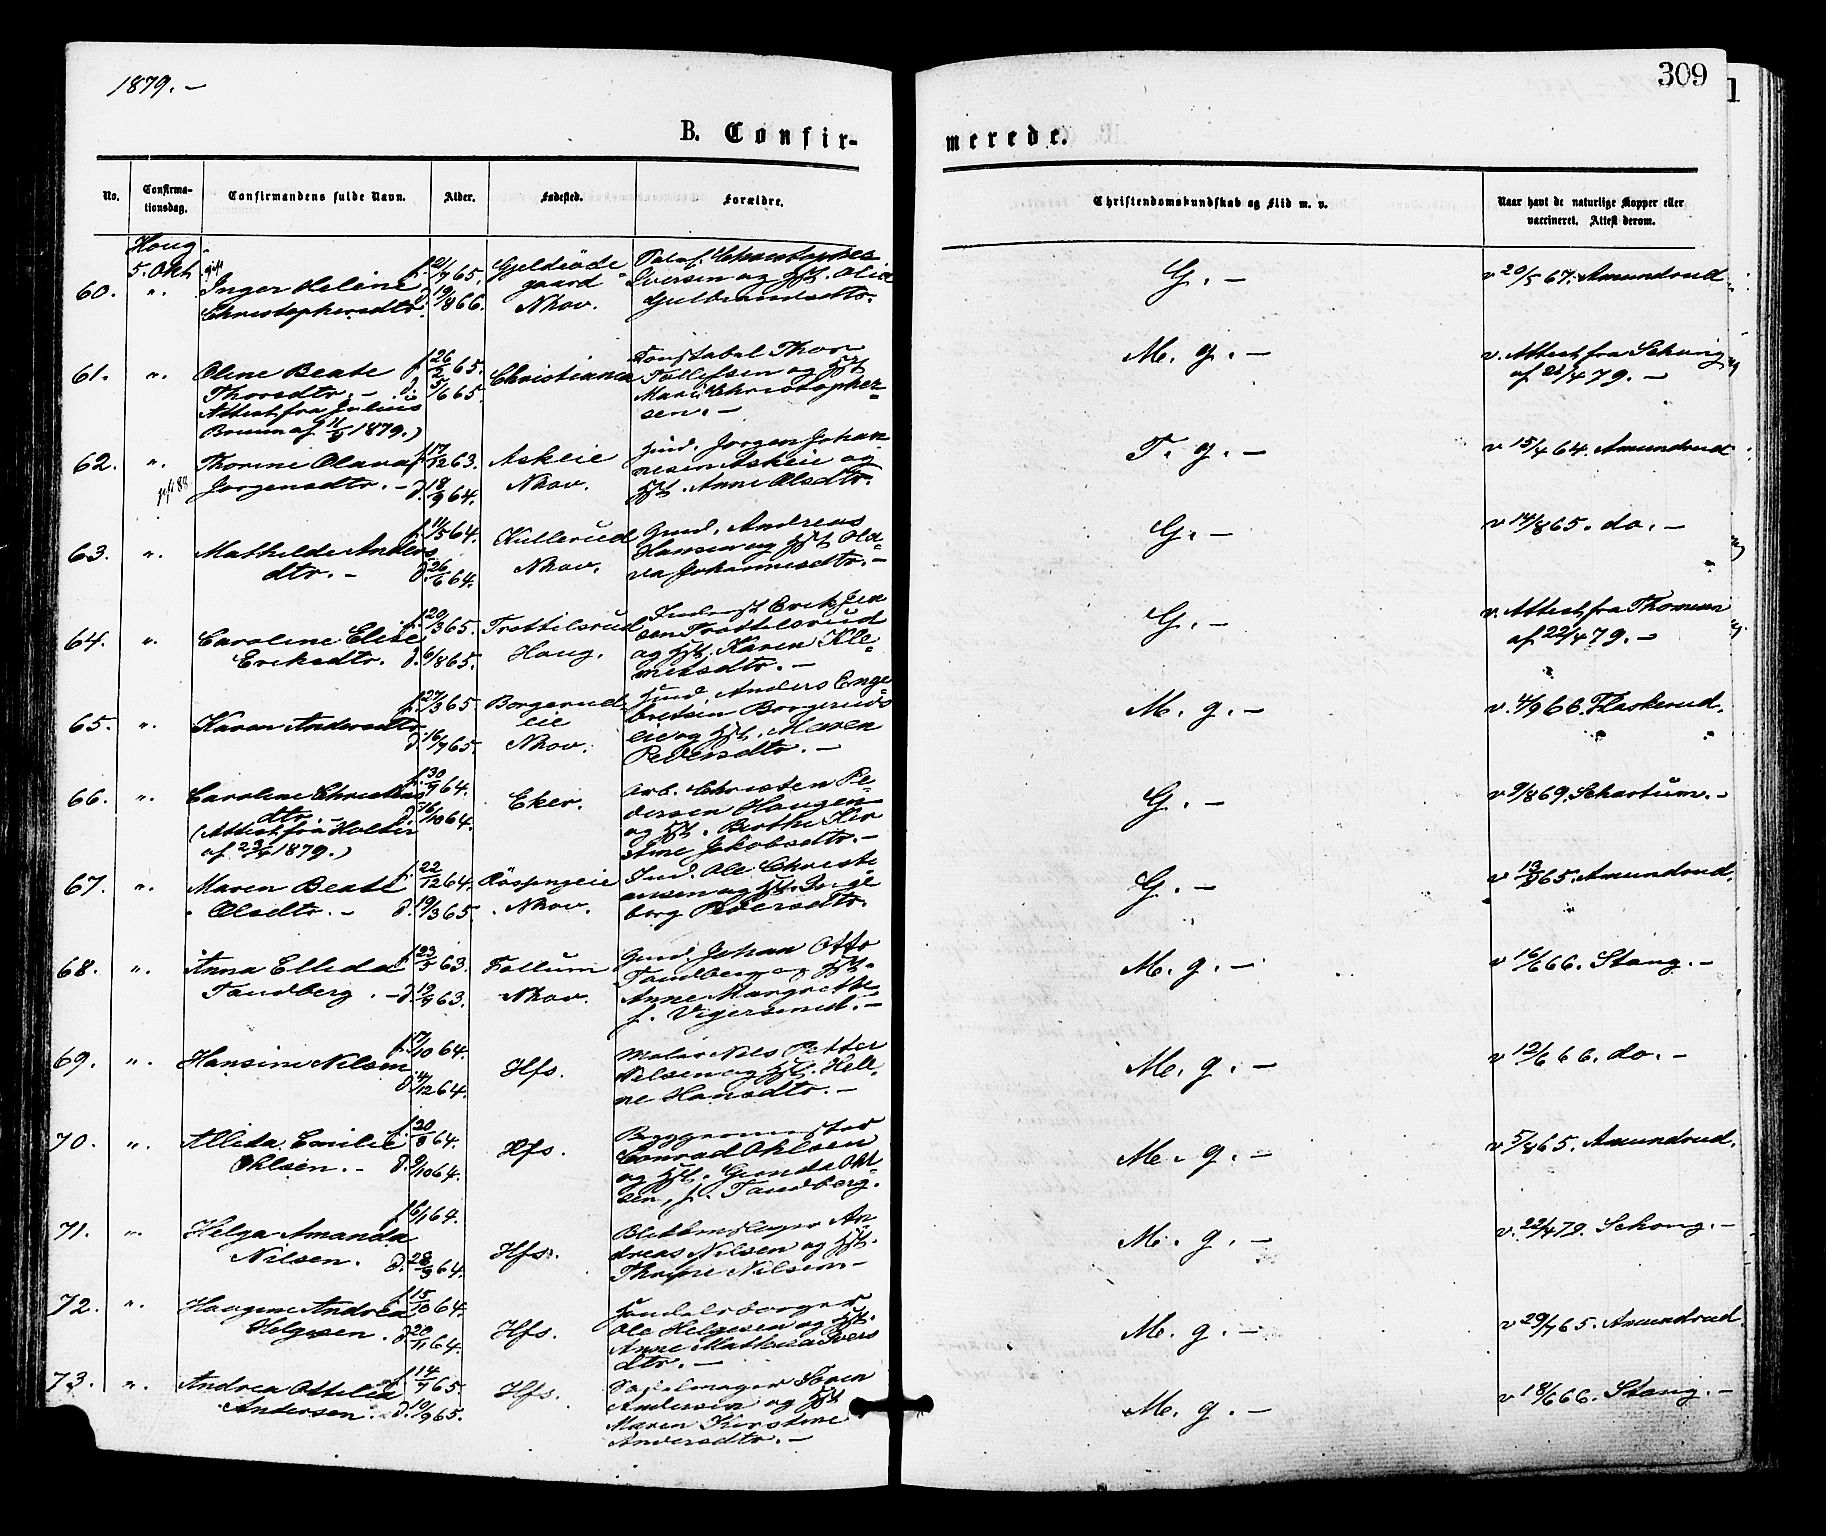 1879. –
309
B. Confir-
merede.
No.
Confirma-
tionsdag.
Confirmandens fulde Navn.
Alder.
Fødested.
Forældre.
Christendomskundskab og Flid m. v.
Naar havt de naturlige Kopper eller
vaccineret. Attest derom.
Houg
5. Okt.
60. "
Inger Heléne
Christophersdtr.
f. 21/9 65.
d. 19/8 66.
gaard
Nhov.
Christopher
Iversen og Hst. Olia
Gulbrandsdtr.
G. –
v 20/5 67. Amundrud
61. "
Oline Beate
Thorsdtr. –
Attest fra Julius
Bruun af 11/9 1879.)
f. 26/2 65.
d. 5/6 65.
Christiania
Konstabel Thor
Tollefsen og Hst
Mari Christopher-
sen. –
M. g. –
v. Attest fra Schwig
af 21/4 79. –
62. "
Thorine Olava
Jørgensdtr. –
gift 88
f. 17/12 63.
d. 18/9 64.
Askeie
Nhov.
Hmd. Jørgen Johan
nesen Askeie og
Hst. Anne Olsdtr.
T. g. –
v 15/4 64. Amundrud
63. "
Mathilde Anders
dtr. –
f. 11/5 64.
d. 26/6 64.
Kullerud
Nhov.
Gmd. Andreas
Hansen og Hst. Ola-
va Johannesdtr. –
G. –
v 14/8 65. do. –
64. "
Caroline Elise
Eriksdtr.
f. 20/3 65.
d. 6/8 65.
Trottilsrud
Houg.
Inderst Erik Jen
sen Trottelsrud
og Hst. Karen Kle-
metsdtr. –
G. –
v. Attest fra Thomsen
af 22/4 79. –
65. "
Karen Andersdtr
f. 27/3 65
d. 16/7 65.
Borgerud-
eie
Nhov.
Hmd. Anders Enge
bretsen Borgeruds
eie og Hst. Maren
Pedersdtr. –
M. g. –
v. 4/9 66. Flaskerud.
66. "
Caroline Christens
dtr. –
(Attest fra Holter
af 23/4 1879.)
f. 30/9 64.
d. 16/10 64.
Eker.
Arb. Christen Pe-
dersen Haugen
og Hst. Berthe Kir
stine Jakobsdtr. –
G. –
v 9/8 69. Schartum. –
67. "
Maren Beate
Olsdtr. –
f. 22/12 64.
d. 19/3 65.
Nhov.
Ind. Ole Christi
ansen og Hst. Inge
borg Pedersdtr.
G. –
v 13/8 65. Amundrud.
68. "
Anna Elleda
Tandberg. –
f. 23/5 63.
d. 12/9 63.
Follum
Nhov.
Gmd. Johan Otto
Tandberg og Hst.
Anne Margrethe,
f. Vegersund. –
M. g. –
v 16/6 66. Stang. –
69. "
Hansine Nilsen
f. 17/10 64.
d. 4/12 64.
Hfs.
Maler Nils Petter
Nilsen og Hst. Hele-
ne Hansdtr. –
M. g. –
v 12/6 66. do. –
70. "
Allida Emilie
Ohlsen. –
f. 30/8 64.
d. 9/10 64.
Hfs.
Byggemester
Conrad Ohlsen
og Hst. Gunda Ohl-
sen, f. Tandberg.
M. g. –
v 5/8 65. Amundrud.
71. "
Helga Amanda
Nilsen.
f. 6/1 64.
d. 28/3 64.
Hfs.
Blikkenslager An-
dreas Nilsen og Hst.
Thrine Nilsen –
M. g. –
v. 22/4 79. Schong. –
72. "
Haagine Andrea
Helgesen.
f. 15/10 64.
d. 20/11 64.
Hfs.
Handelsborger
Ole Helgesen og Hst.
Anne Mathea Ivers
dtr. –
M. g. –
v 29/7 65. Amundrud.
73. "
Andrea Ottilia
Andersen.
f. 14/7 65.
d. 10/9 65.
Hfs.
Sadelmager Søren
Andersen og Hst
Maren Kirstine
Andersdtr. –
M. g. –
v 18/6 66. Stang. –